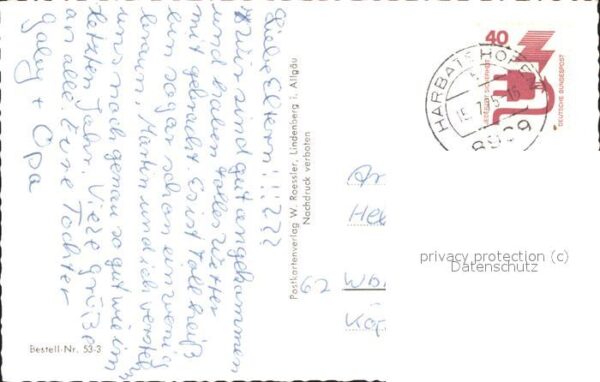 Liebe Eltern!!!???
Wir sind gut angekommen
und haben tolles Wetter
mit gebracht. Es ist toll heiß
ein sogar schon ein wenig
braun, Martin und ich verstehn
uns noch genau so gut wie im
letzten Jahr. Viele grüße
an alle. Eure Tochter
Gaby + Opa
Bestell-Nr. 53-3
Postkartenverlag W. Roessler, Lindenberg i. Allgäu
Nachdruck verboten
40
JEDERZEIT SICHERHEIT
DEUTSCHE BUNDESPOST
HARBATSHOFEN
8999
An
62
privacy protection (c)
Datenschutz